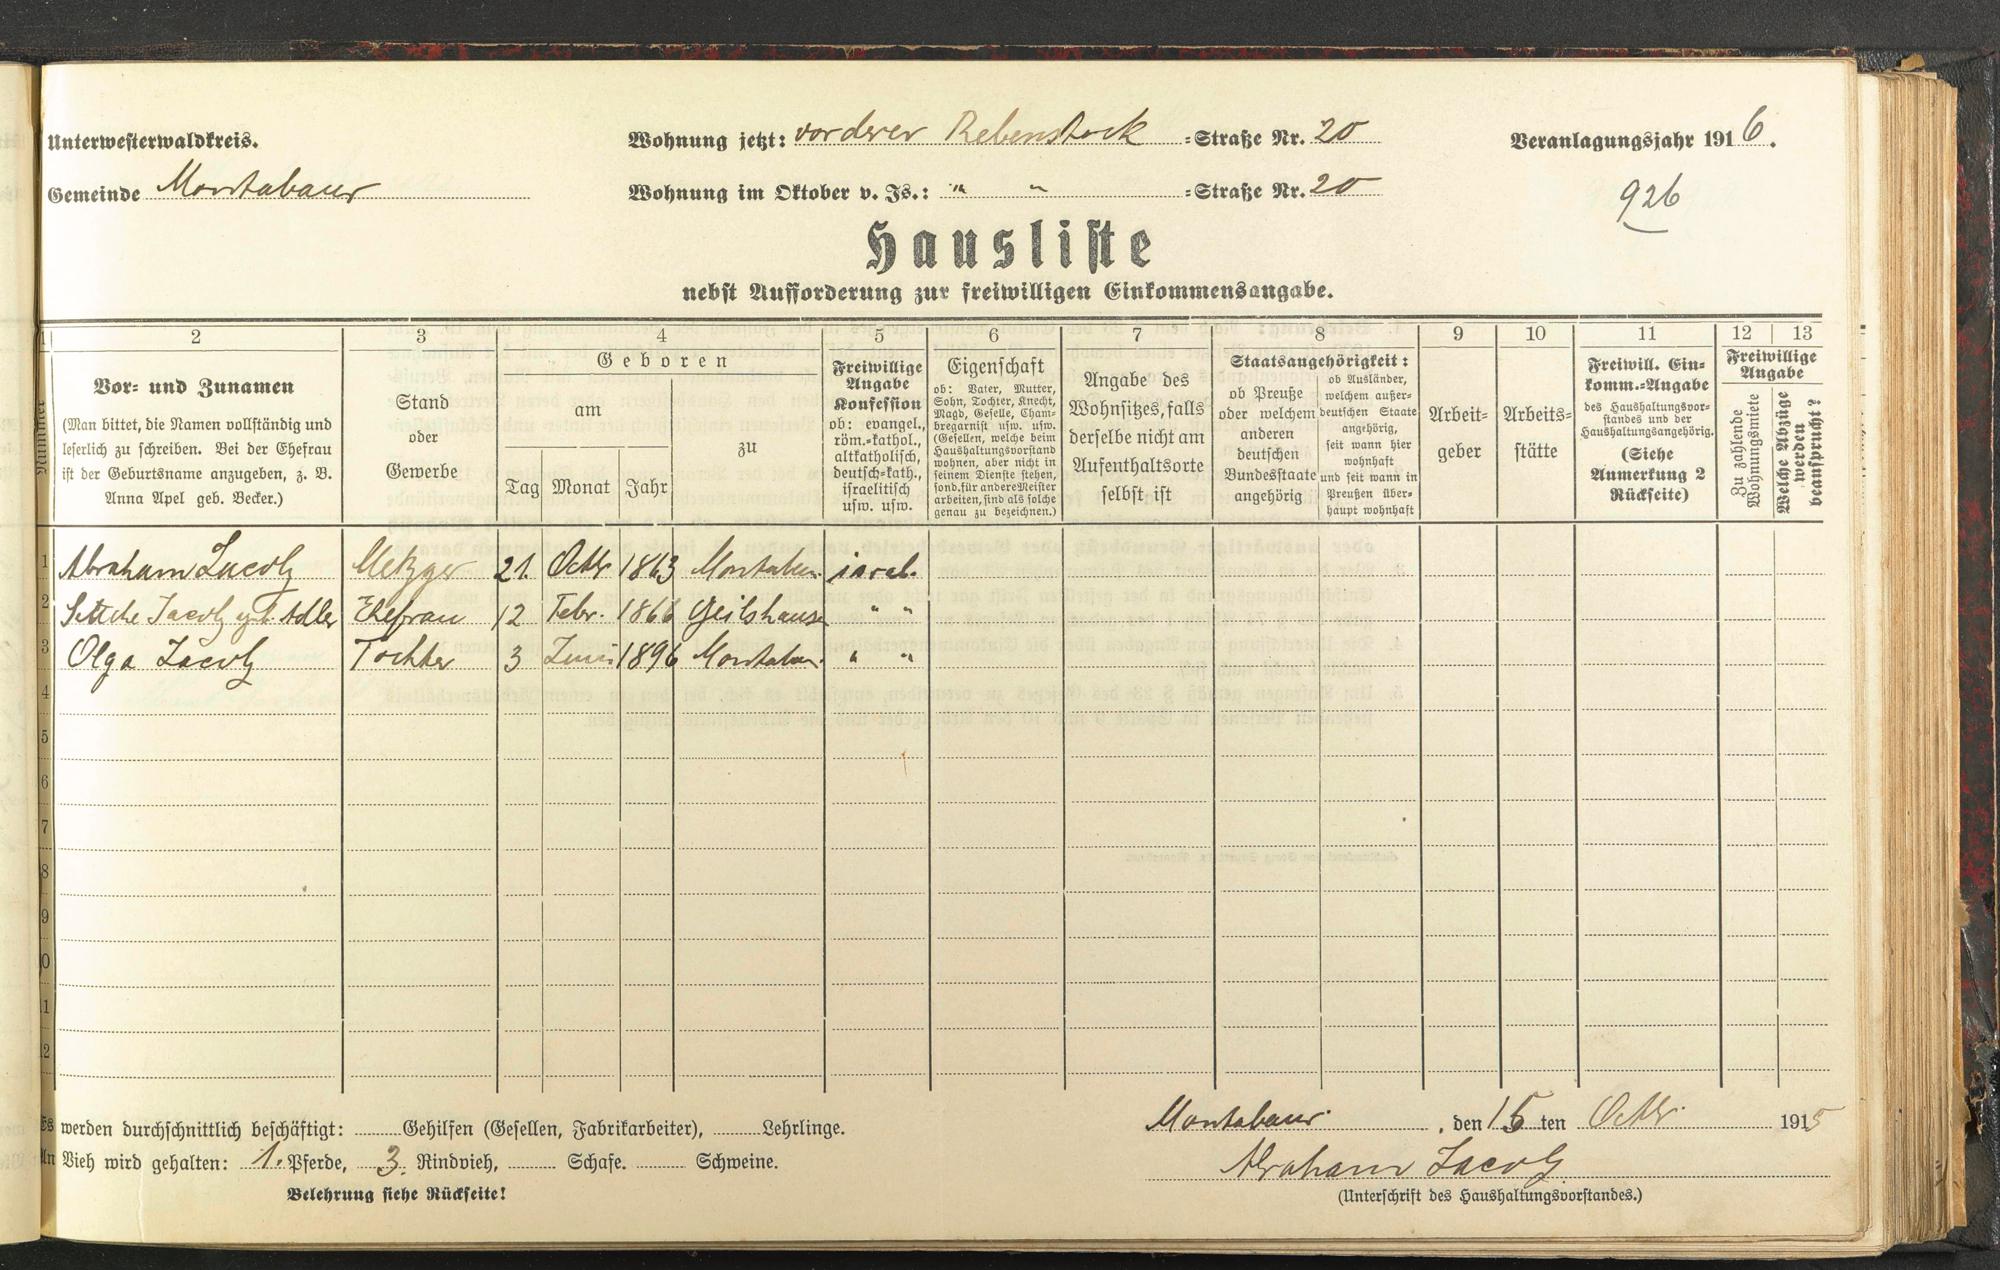 Unterwesterwaldkreis.
Gemeinde Montabaur
Wohnung jetzt: vorderer Rebenstock =Straße Nr. 20
Wohnung im Oktober v. Js.: " " =Straße Nr. 20
Veranlagungsjahr 1916.
926
Hausliste
nebst Aufforderung zur freiwilligen Einkommensangabe.
1 2 3 4 5 6 7 8 9 10 11 12 13
Nummer
Vor- und Zunamen
(Man bittet, die Namen vollständig und
leserlich zu schreiben. Bei der Ehefrau
ist der Geburtsname anzugeben, z. B.
Anna Apel geb. Becker.)
Stand
oder
Gewerbe
Geboren
am
Tag Monat Jahr
zu
Freiwillige
Angabe
Konfession
ob: evangel.,
röm.-kathol.,
altkatholisch,
deutsch-kath.,
israelitisch
usw. usw.
Eigenschaft
ob: Vater, Mutter,
Sohn, Tochter, Knecht,
Magd, Geselle, Cham-
bregarnist usw. usw.
(Gesellen, welche beim
Haushaltungsvorstand
wohnen, aber nicht in
seinem Dienste stehen,
sond. für andere Meister
arbeiten, sind als solche
genau zu bezeichnen.)
Angabe des
Wohnsitzes, falls
derselbe nicht am
Aufenthaltsorte
selbst ist
Staatsangehörigkeit:
ob Preuße
oder welchem
anderen
deutschen
Bundesstaate
angehörig
ob Ausländer,
welchem außer-
deutschen Staate
angehörig,
seit wann hier
wohnhaft
und seit wann in
Preußen über-
haupt wohnhaft
Arbeit-
geber
Arbeits-
stätte
Freiwill. Ein-
komm.-Angabe
des Haushaltungsvor-
standes und der
Haushaltungsangehörig.
(Siehe
Anmerkung 2
Rückseite)
Freiwillige
Angabe
Zu zahlende
Wohnungsmiete
Welche Abzüge
werden
beansprucht?
1 Abraham Jacoby Metzger 21. Octbr. 1863 Montabaur. israel.
2 Settche Jacoby geb. Adler Ehefrau 12 Febr. 1866 Geilshausen " "
3 Olga Jacoby Tochter 3 Juni 1896 Montabaur. " "
4
5
6
7
8
9
10
11
12
Es werden durchschnittlich beschäftigt: Gehilfen (Gesellen, Fabrikarbeiter), Lehrlinge.
An Vieh wird gehalten: 1. Pferde, 3. Rindvieh, Schafe. Schweine.
Belehrung siehe Rückseite!
Montabaur, den 15 ten Octbr. 1915
Abraham Jacoby
(Unterschrift des Haushaltungsvorstandes.)